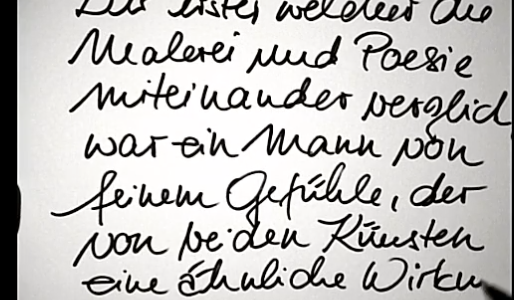 Der erste, welcher die
Malerei und Poesie
miteinander verglich
war ein Mann von
feinem Gefühle, der
von beiden Künsten
eine ähnliche Wirku